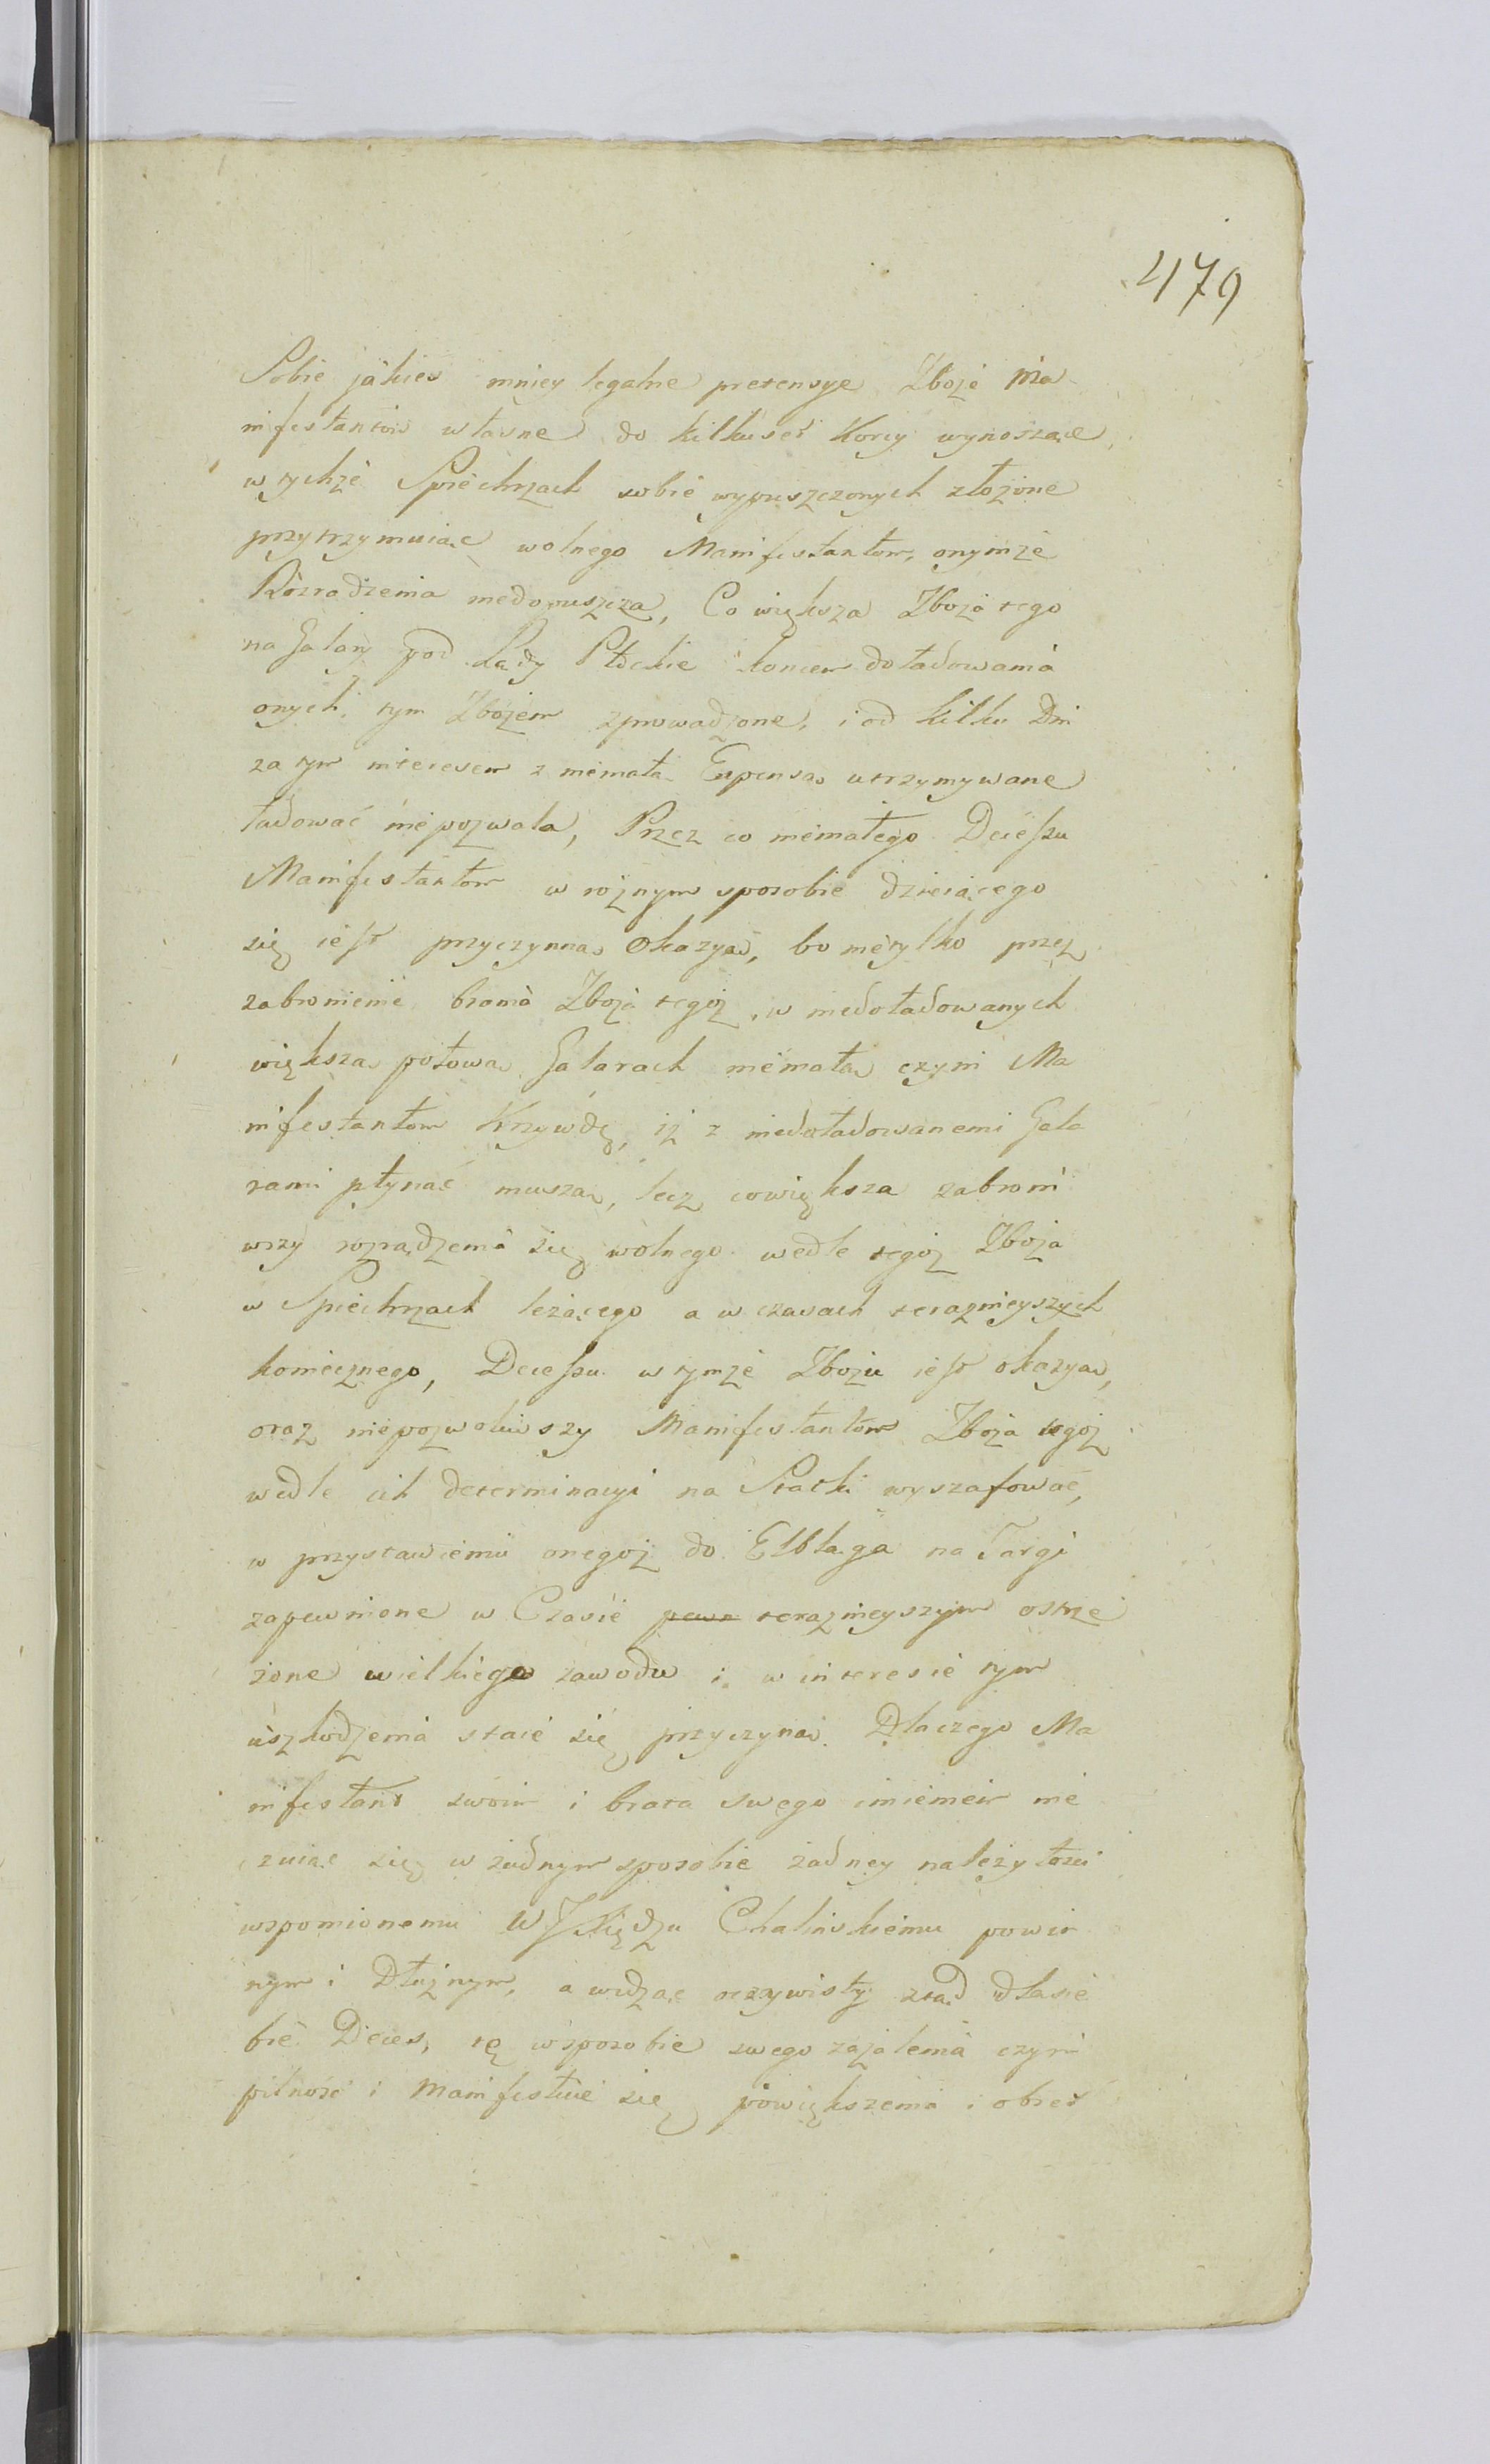 479
Sobie jakieś mniey legalne pretensye Zboże Ma
nifestantów własne do kilkuset Korcy wynoszące,
w tychże Spiechrzach sobie wypuszczonych złożone
przytrzymuiąc wolnego Manifestantom, onymże
Rozrządzenia niedopuszcza, Co większa Zboża tego
na Galary pod Lądy Płockie koncem doładowania
onych, tym Zbożem zprowadzone, i od kilku Dni
za tym interesem z niemałą Expensą utrzymywane
ładować niepozwala, Przez co niemałego Decessu
Manifestantom w rożnym sposobie dzieiącego
się iest przyczynną Okazyą, bo nietylko przez
zabronienie brania Zboża tegoż, w niedoładowanych
większą połową Galarach niemałą czyni Ma
nifestantom Krzywdę, iż z niedoładowanemi Gala
rami płynąć muszą, lecz cowiększa zabroni
wszy rozrządzenia się wolnego wedle tegoż Zboża
w Spiechrzach leżącego a w czasach teraznieyszych
koniecznego, Decessu w tymże Zbożu iest okazyą,
oraz niepozwoliwszy Manifestantom Zboża tegoż
wedle ich determinacyi na Statki wyszafować,
w przystawieniu onegoż do Elbląga na Targi
zapewnione w Czasie pewn teraznieyszym ostrze
żone wielkiego zawodu i w interesie tym
uszkodzenia staie się przyczyną. Dlaczego Ma
nifestant swoim i brata swego imieniem nie
czuiąc się w żadnym sposobie żadney należytości
wspomionemu WJXiędzu Chalińskiemu powin
nym i Dłużnym, a widząc oczywisty ztąd dlasie
bie Deces, tę wsposobie swego zażalenia czyni
pilność i Manifestuie się powiększenia i obrest